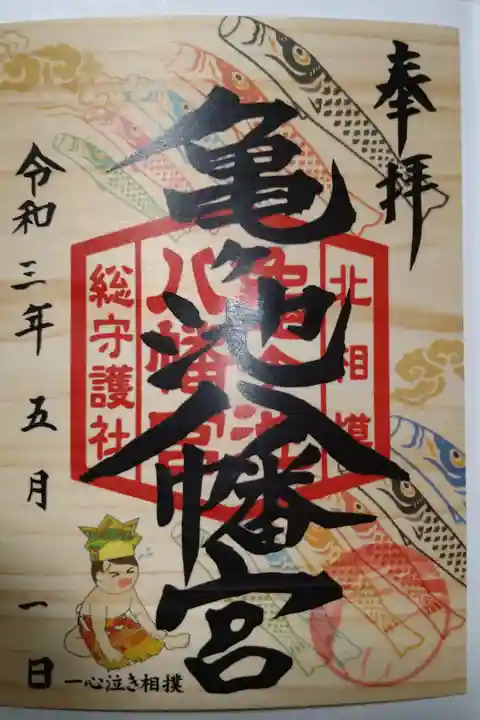 奉拝
亀ヶ池八幡宮
北相模
亀ヶ池
八幡宮
総守護社
令和三年五月一日
一心泣き相撲